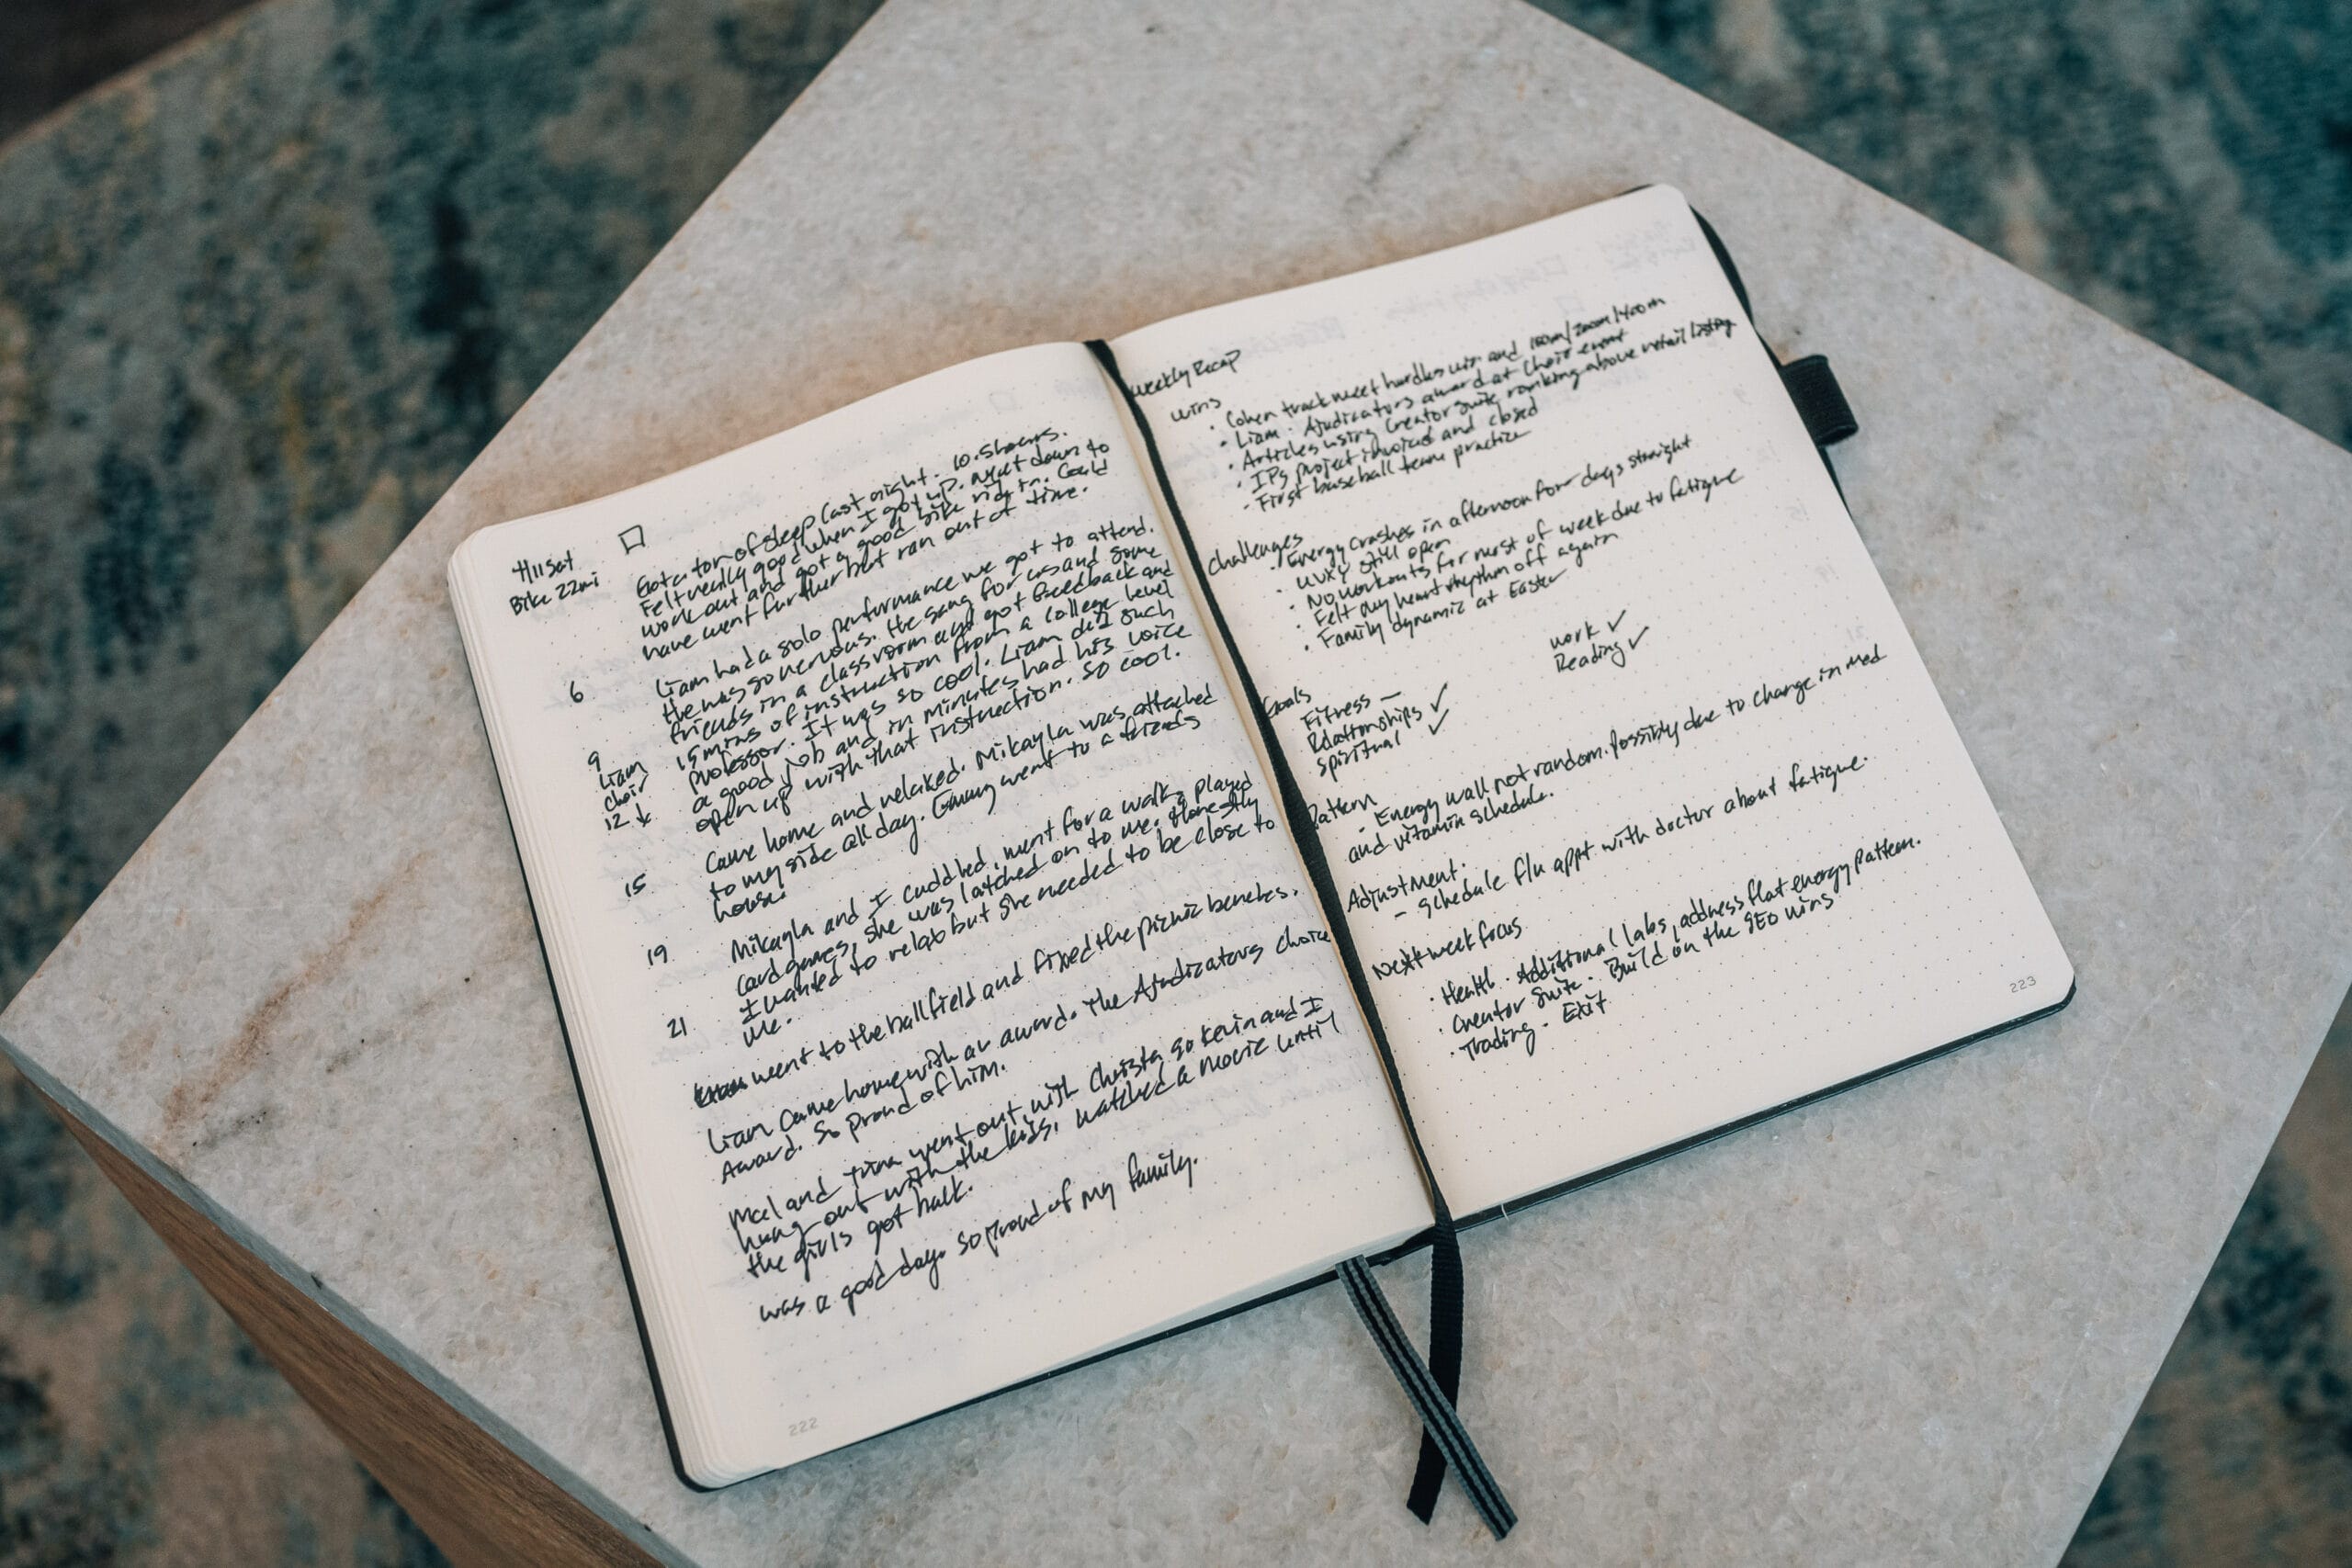 4/11 Sat
Bike 22mi
Got a ton of sleep last night. 10.5 hours.
Felt really good when I got up. Went down to
work out and got a good bike ride in. Could
have went further but ran out of time.
6
Liam had a solo performance we got to attend.
He was so nervous. He sang for us and some
friends in a classroom and got feedback and
15 mins of instruction from a college level
professor. It was so cool. Liam did such
a good job and in minutes had his voice
open up with that instruction. So cool.
9
Liam
choir
12
Came home and relaxed. Mikayla was attached
to my side all day. Emmy went to a friends
house.
15
Mikayla and I cuddled, went for a walk, played
card games, she was latched on to me. Honestly
I wanted to relax but she needed to be close to
me.
19
21
went to the ball field and fixed the picnic benches.
Liam came home with an award. The Ajudicators choice
Award. So proud of him.
Mel and Tina went out with Christa so Kevin and I
hung out with the kids, watched a movie until
the girls got back.
was a good day. So proud of my family.
222
Weekly Recap
wins
· Cohen track meet hurdles win and 100m/200m/400m
· Liam - Ajudicators award at choir event
· Articles using Creator Suite ranking above retail listing
· IPS project invoiced and closed
· First baseball team practice
Challenges
· Energy crashes in afternoon for days straight
· UVXY still open
· No workouts for most of week due to fatigue
· Felt my heart rhythm off again
· Family dynamic at Easter
Goals
Fitness —
Relationships ✓
Spiritual ✓
work ✓
Reading ✓
Pattern
- Energy wall not random. Possibly due to change in med
and vitamin schedule.
Adjustment.
- Schedule f/u appt with doctor about fatigue.
Next week focus
· Health - Additional labs, address flat energy pattern.
· Creator Suite - Build on the SEO wins
· Trading - Exit
223